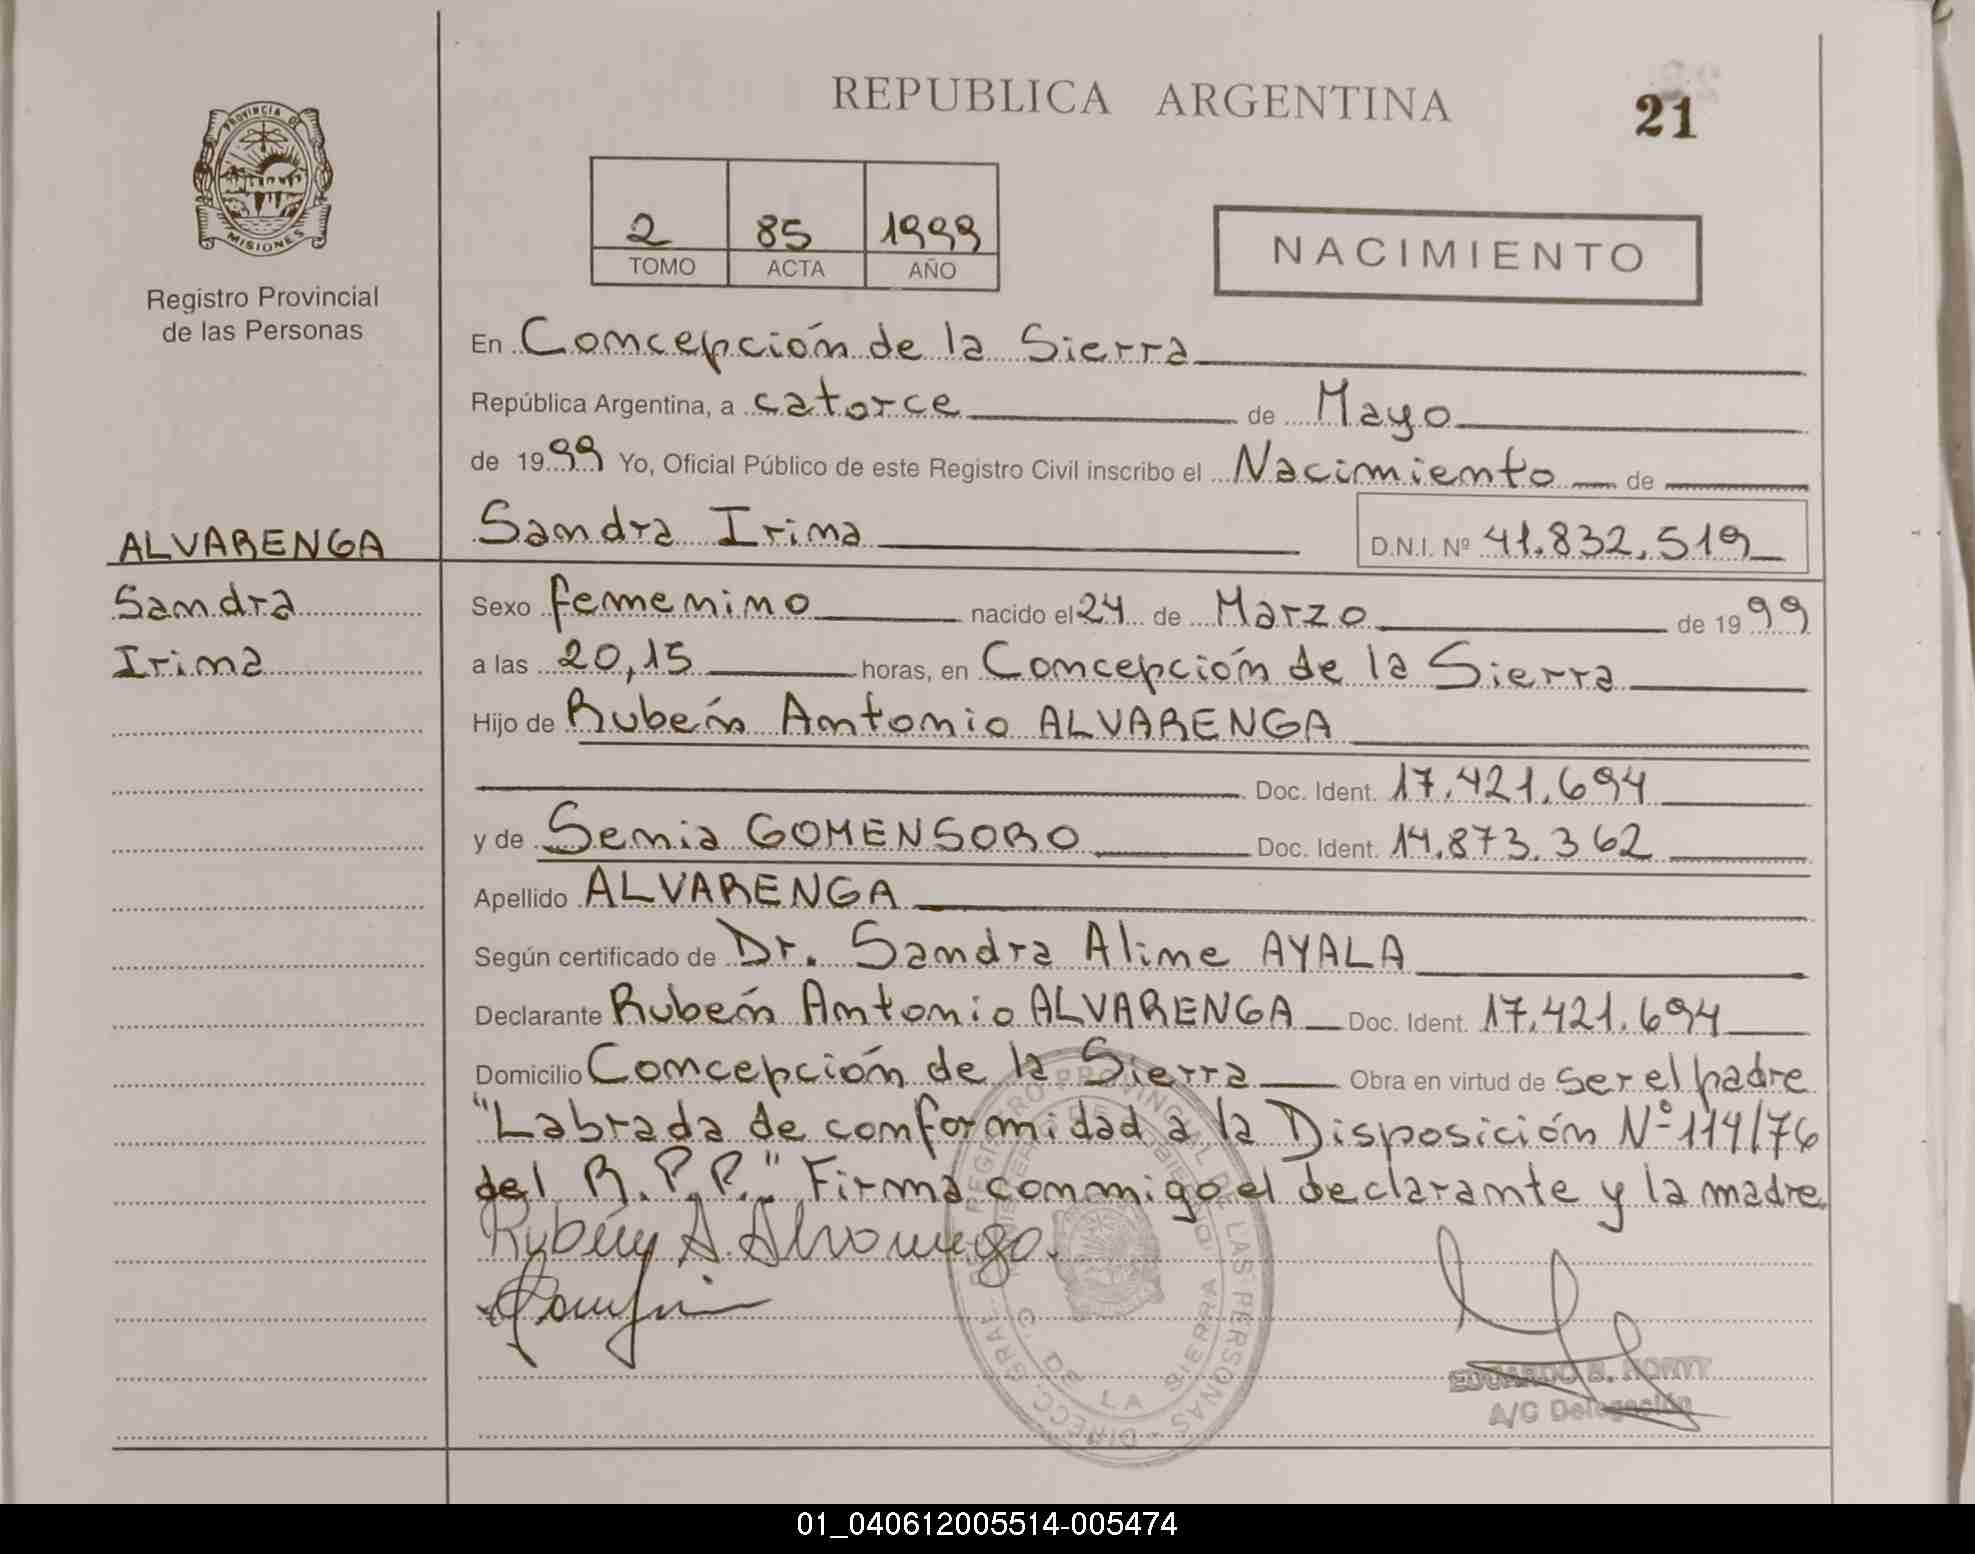 REPUBLICA ARGENTINA
21
PROVINCIA DE
MISIONES
Registro Provincial
de las Personas
2 85 1999
TOMO ACTA AÑO
NACIMIENTO
En Concepción de la Sierra
República Argentina, a catorce de Mayo
de 1999 Yo, Oficial Público de este Registro Civil inscribo el Nacimiento de
Sandra Irina D.N.I. Nº 41.832.519
ALVARENGA
Sandra
Irina
Sexo femenino nacido el 24 de Marzo de 1999
a las 20,15 horas, en Concepción de la Sierra
Hijo de Rubén Antonio ALVARENGA
Doc. Ident. 17.421.694
y de Senia GOMENSORO Doc. Ident. 14.873.362
Apellido ALVARENGA
Según certificado de Dr. Sandra Aline AYALA
Declarante Rubén Antonio ALVARENGA Doc. Ident. 17.421.694
Domicilio Concepción de la Sierra Obra en virtud de ser el padre
"Labrada de conformidad a la Disposición Nº 114/76
del R.P.P." Firma conmigo el declarante y la madre
Rubén A. Alvarenga.
DIRECC. GRAL. REGISTRO PROVINCIAL DE LAS PERSONAS
C. DE LA SIERRA
EDUARDO B.
A/C Delegación
01_040612005514-005474